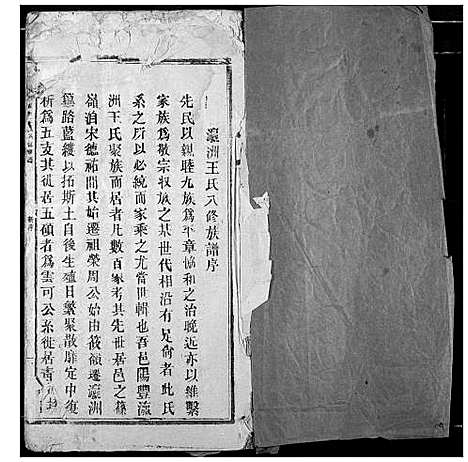 瀛洲王氏八修族譜序
先民以親睦九族為平章恊和之治晚近亦以維繫
家族為敬宗収族之基世代相沿有是尙者此氏
系之所以必統而家乘之尤當世輯也吾邑陽豐瀛
洲王氏聚族而居者凡數百家考其先世居邑之篠
嶺洎宋德祐間其始遷祖榮周公始由篠嶺遷瀛洲
篳路藍縷以拓斯土自後生殖日繁聚散靡定中復
析為五支其從居五碩者為雲可公系徙居